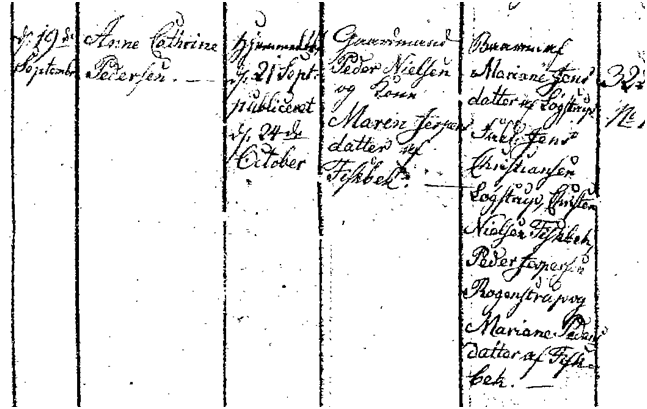 d. 19de
Septembr
Anne Cathrine
Pedersen. —
hjemmedöbt
d. 21 Sept.
publiceret
d. 24de
October
Gaardmand
Peder Nielsen
og Kone
Maren Jesper
datter af
Fiskbek. —
Baaren af
Mariane Jens
datter af Lögstrup
Test. Jens
Christiansen
Lögstrup, Christen
Nielsen Fiskbek,
Peder Jespersen
Rogenstrup og
Mariane Peders
datter af Fisk-
bek. —
32
No 1